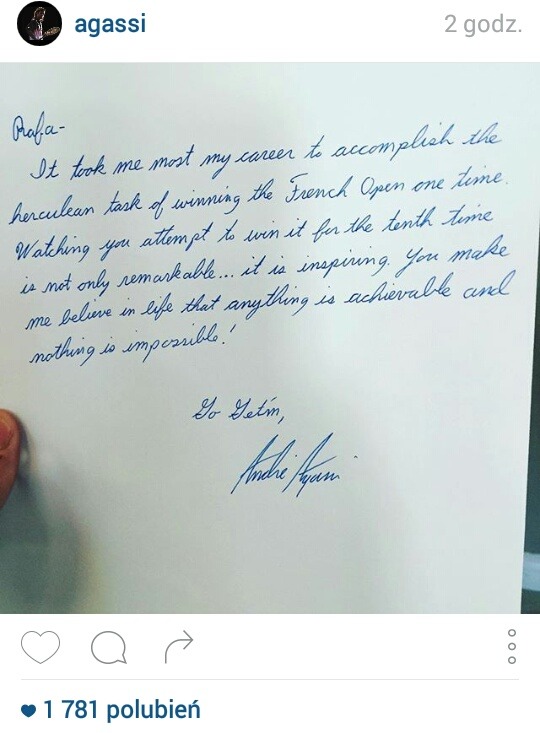 agassi
2 godz.
Rafa-
It took me most my career to accomplish the
herculean task of winning the French Open one time.
Watching you attempt to win it for the tenth time
is not only remarkable... it is inspiring. You make
me believe in life that anything is achievable and
nothing is impossible!
Go Get'm,
Andre Agassi
1 781 polubień